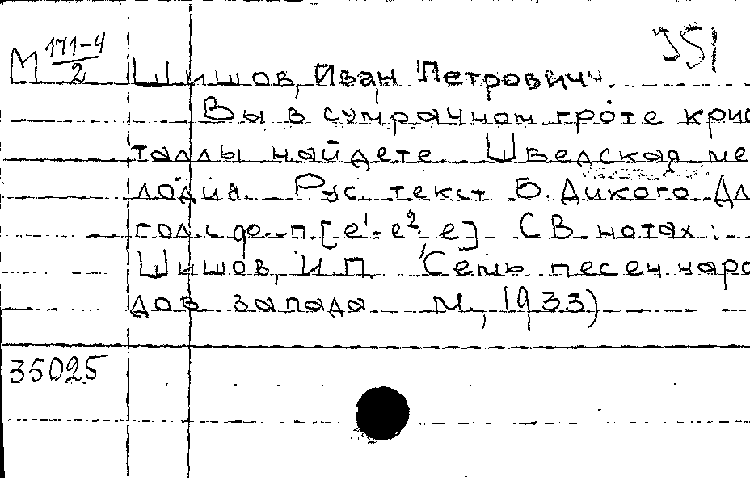 М 171-4/2
351
Шишов, Иван Петрович.
Вы в сумрачном гроте крис
таллы найдете. Шведская ме
лодия. Рус. текст Б. Дикого Дл
гол. с ф-п. [e¹-e², e] (В нотах:
Шишов, И.П. Семь песен наро
дов запада М., 1933)
35025